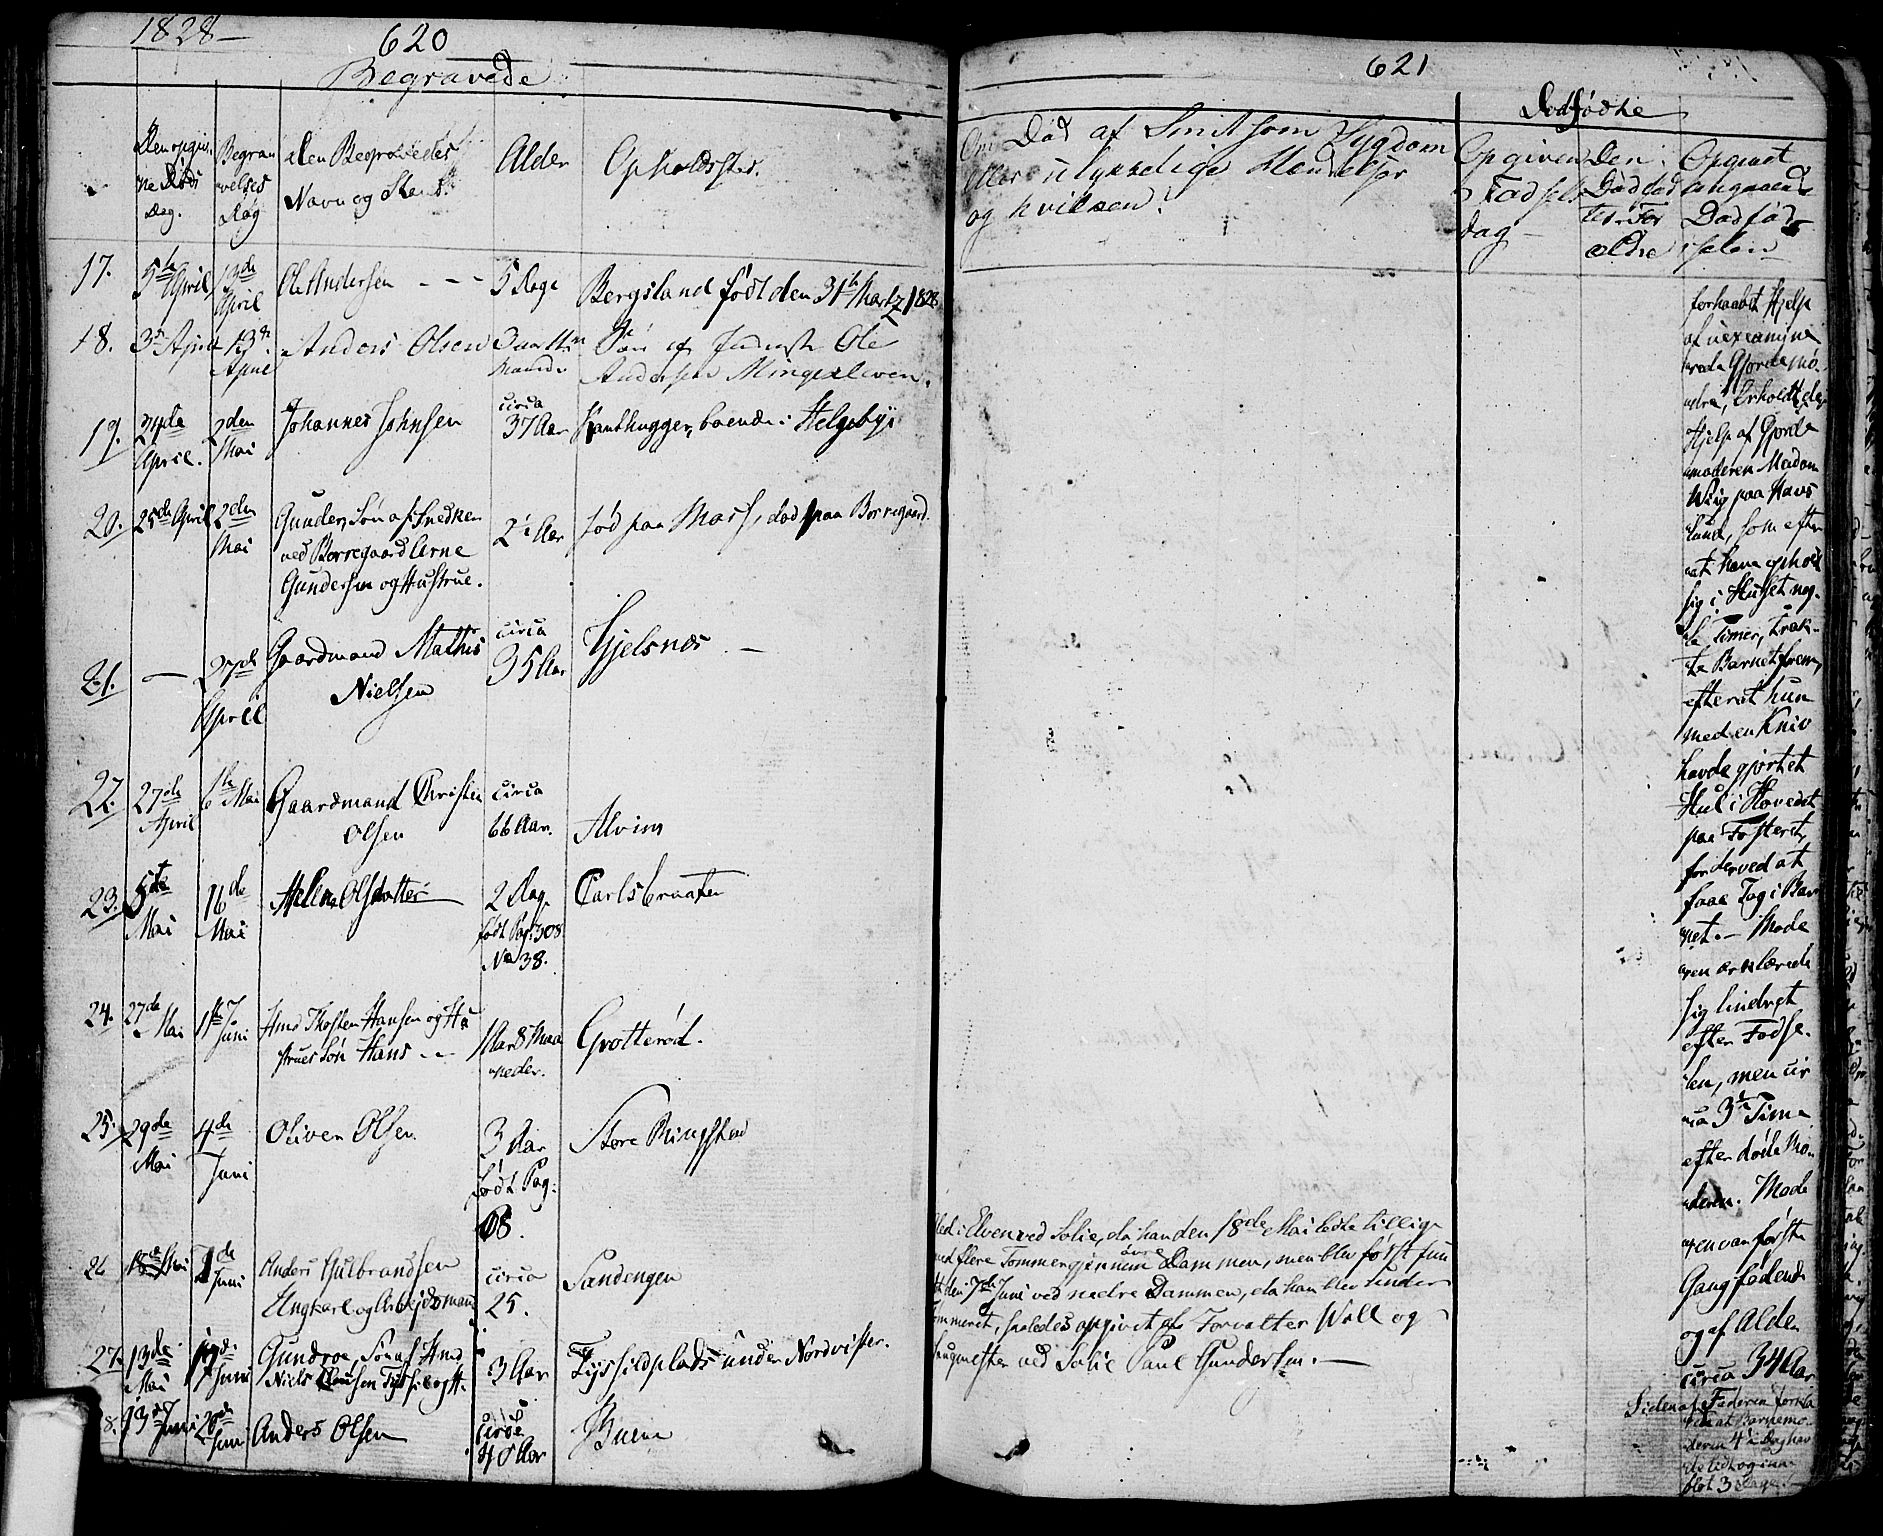 1828–
620
Begravede
Den opgiv.
ne Døds
Dag.
Begra
velses
Dag
den Begravedes
Navn og Stand.
Alder
Opholdssted.
17.
5te April
13de April
Ole Andersen - - -
5 Dage
Bergsland født den 31te Martz 1828
18.
3de April
13de April
Anders Olsen
Maaneder
Søn af Ole
Andersen Mingesleven.
19.
24de April.
2den Mai
Johannes Johnsen
circa
37 Aar
Kanthugger, boende i Helgebye
20.
25de April
2den Mai
Gunder, Søn af Snedker
ved Borregaard Arne
Gundersen og Hustrue.
2½ Aar
fød paa Moss, død paa Borregaard.
21.
—
27de April
Gaardmand Mathis
Nielsen
circa
35 Aar
Hjelsnæs —
22.
27de April
6te Mai
Gaardmand Christen
Olsen
circa
66 Aar.
Alvim
23.
5te Mai
16de Mai
Helene Olsdatter
2 Dag.
født Pag: 308
No 38.
Carlsbraaten
24.
27de Mai
1te Juni
Hmd Thosten Hansen og Hu
strues Søn Hans - -
1 Aar 8 Maa
neder.
Grotterød.
25.
29de Mai
4de Juni
Oliver Olsen.
3 Aar
født Pag:
68.
Store Ringstad
26
18de Mai
Juni
Anders Gulbrandsen
Ungkarl og Arbejdsmand
circa
25.
Sandengen
27.
13de Mai
Juni
Gundroe Søn af Hmd
Niels Clausen Tysfil og H.
3 Aar
Tysfildplads under Nordvister.
8.
13de Juni
20de Juni
Anders Olsen
circa
40 Aar
Buen
621
Om Død af Smitsom Sygdom
eller ulykkelige Hændelser
og hvilken?
Dødfødte
Opgiven
Fødsels
dag –
Den
Dødfød
tes For
ældre
Opgivet
angaaende
Dødfød
selen
død i Elven ved Solie, da han den 18de Mai ledte tillige
med flere Tømmer gjennem øvre Dammen, men blev først fun
den 7de Juni ved nedre Dammen, da han blev under
Tømmeret, saaledes opgivet af Forvalter Woll og
Saugmester ved Solie Paul Gundersen. —
forhaabet Hjelp
af uexamine
rede Gjordemø
dre, erholdt den
Hjelp af Gjorde
moderen Madam
Wiig paa Havs
lund, som efter
at have opholdt
sig i Huset nog-
le Timer, træk-
te Barnet frem,
efterat hun
med en Kniv
havde gjort et
Hul i Hovedet
paa Fosteret,
for derved at
faae Tag i Bar
net. – Mode
ren erklærede
sig lindret
efter Fødse-
len, men cir
ca 3de Time
efter døde Mo-
deren. Mode
ren var første
Gang fødende
og af Alder
circa 34 Aar
Siden af Faderen forkla
ret at Barnemo
deren 4 à Dag hav
de ledt og inne
blot 3 Dage. –